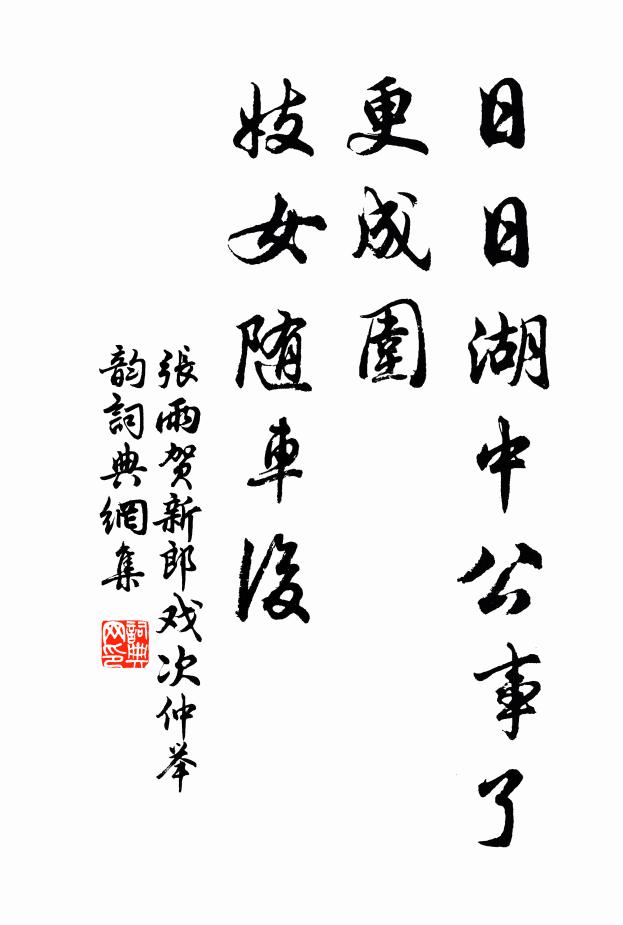 日日湖中公事了
更成圍
妓女随車後
張雨贺新郎戏次仲举
韵詞典網集
詞典
网印